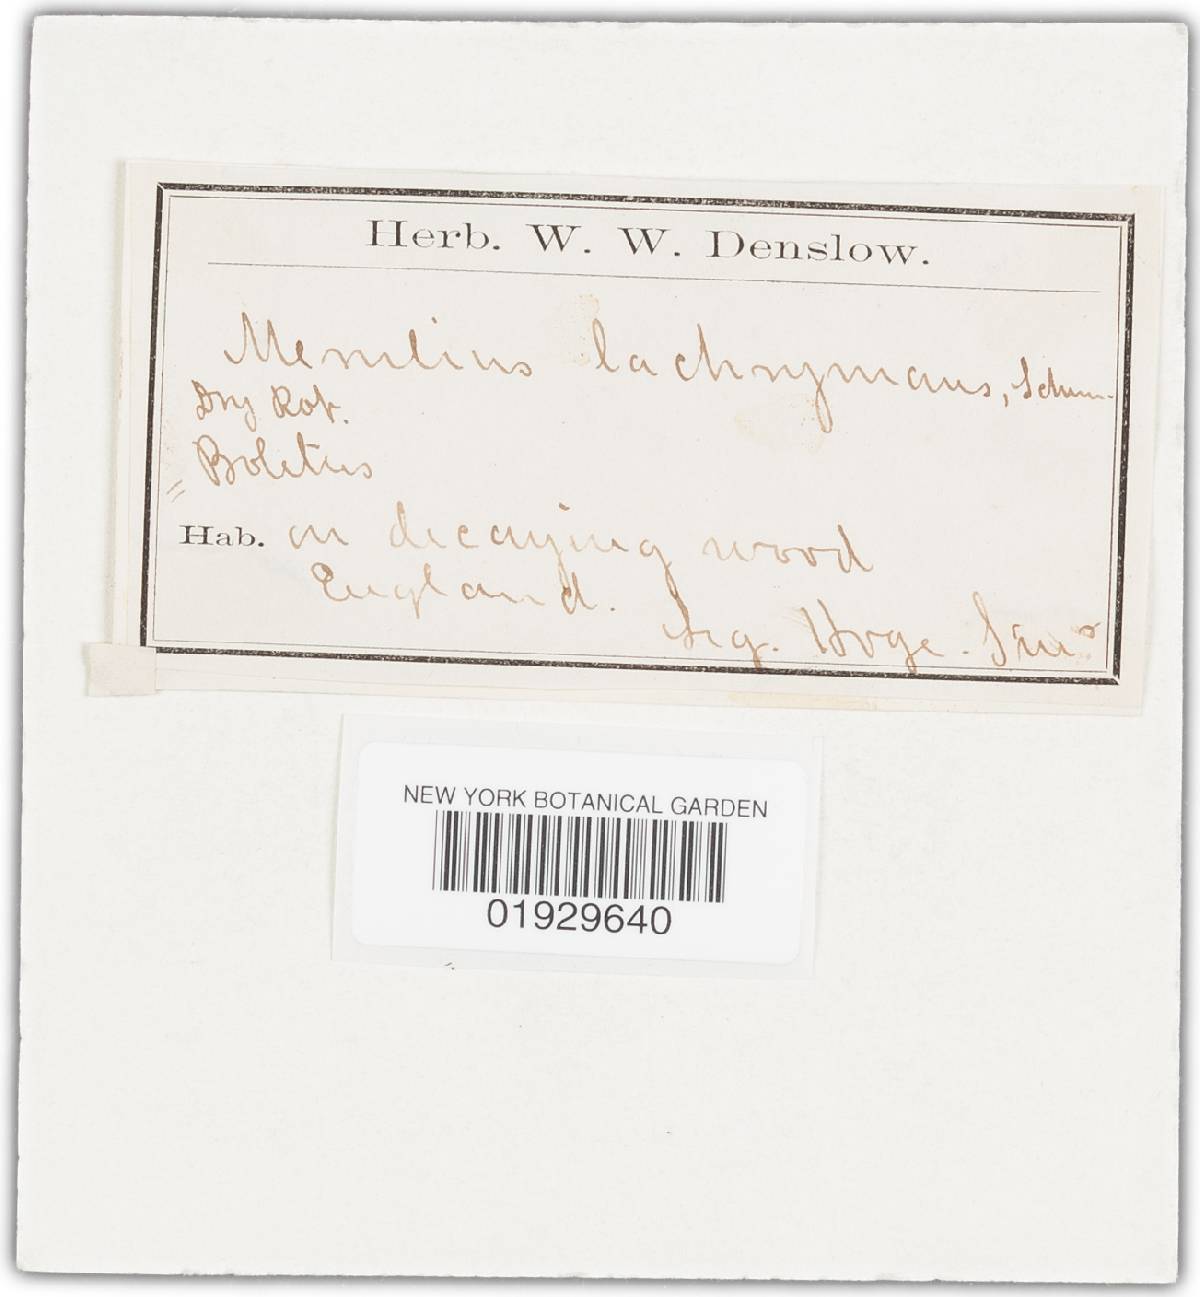 Herb. W. W. Denslow.
Merulius lachrymans, Schum.
Dry Rot.
Boletus
Hab. on decaying wood
England.
Leg.
NEW YORK BOTANICAL GARDEN
01929640